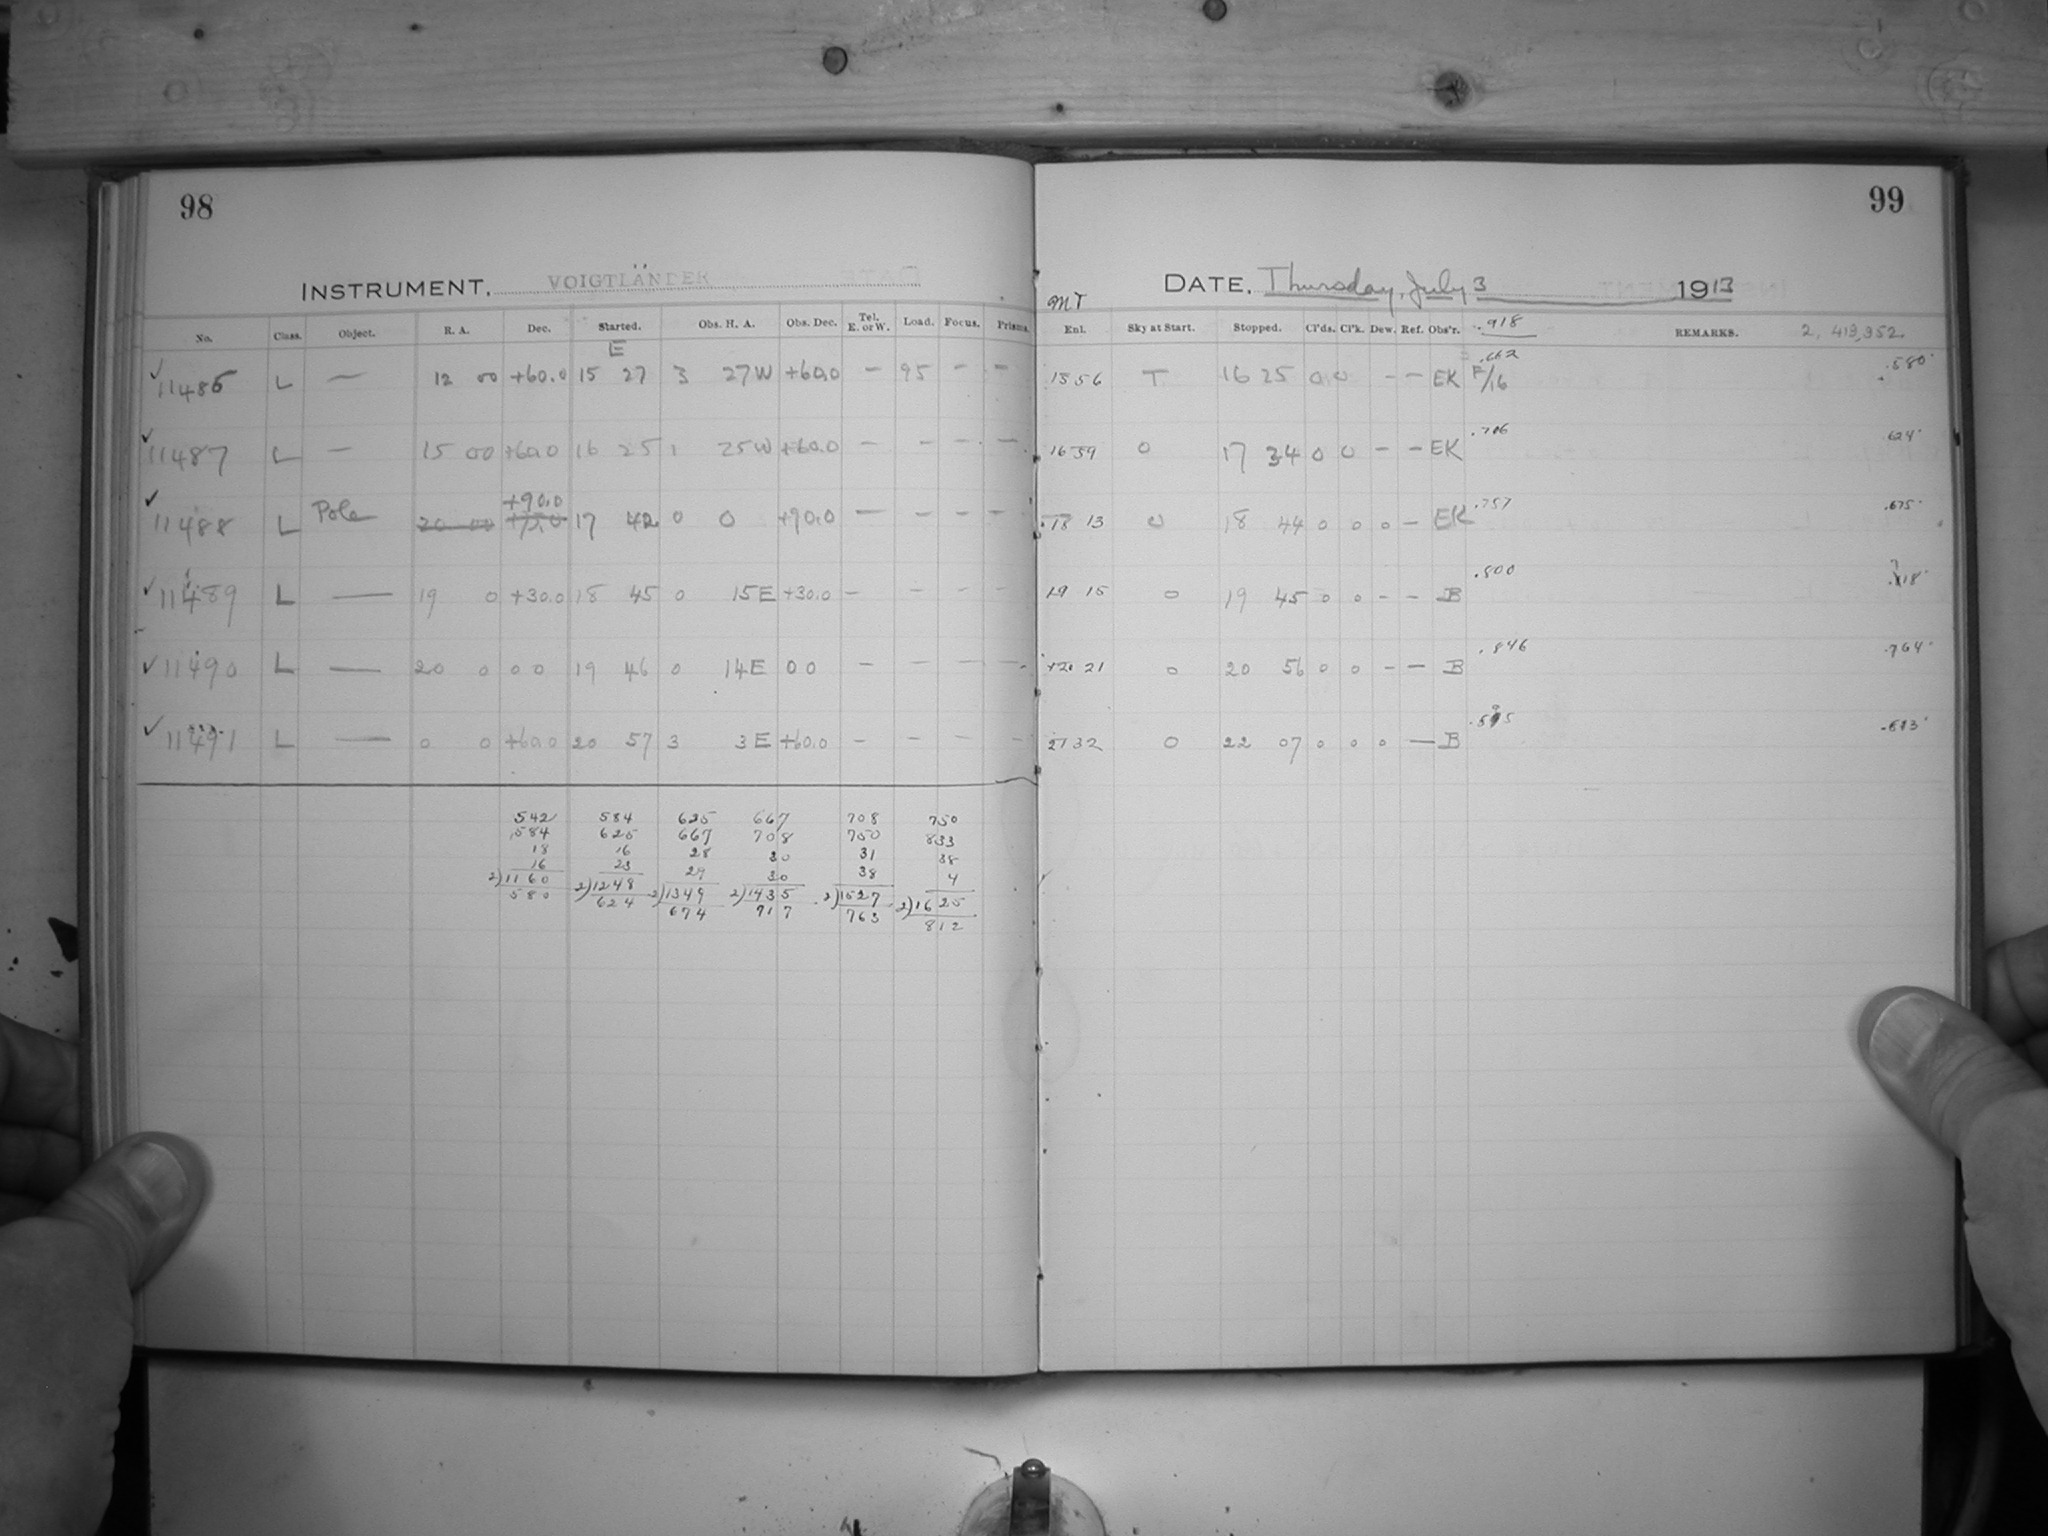 98
INSTRUMENT, VOIGTLÄNDER
No. Class. Object. R. A. Dec. Started. Obs. H. A. Obs. Dec. Tel. E. or W. Load. Focus. Prisms.
E
11486 L — 12 00 +60.0 15 27 3 27W +60.0 — 95 — —
11487 L — 15 00 +60.0 16 25 1 25W +60.0 — — — —
+90.0
11488 L Pole 20 00 17 42 0 0 +90.0 — — — —
11489 L — 19 0 +30.0 18 45 0 15E +30.0 — — — —
11490 L — 20 0 0 0 19 46 0 14E 0 0 — — — —
11491 L — 0 0 +60.0 20 57 3 3E +60.0 — — — —
542 584 625 667 708 750
.584 625 667 708 750 833
18 16 28 30 31 38
16 23 29 30 38 4
2)1160 2)1248 2)1349 2)1435 2)1527 2)1625
580 624 674 717 763 812
99
DATE, Thursday, July 3 1913
MT
Enl. Sky at Start. Stopped. Cl'ds. Cl'k. Dew. Ref. Obs'r. .918 REMARKS. 2,413,352.
.662
1556 T 16 25 0 0 — — EK F/16 .580
1659 0 17 34 0 0 — — EK .706 .624
18 13 0 18 44 0 0 0 — EK .757 .675
19 15 0 19 45 0 0 — — B .800
21 0 20 56 0 0 — — B .846 .764
2132 0 22 07 0 0 0 — B